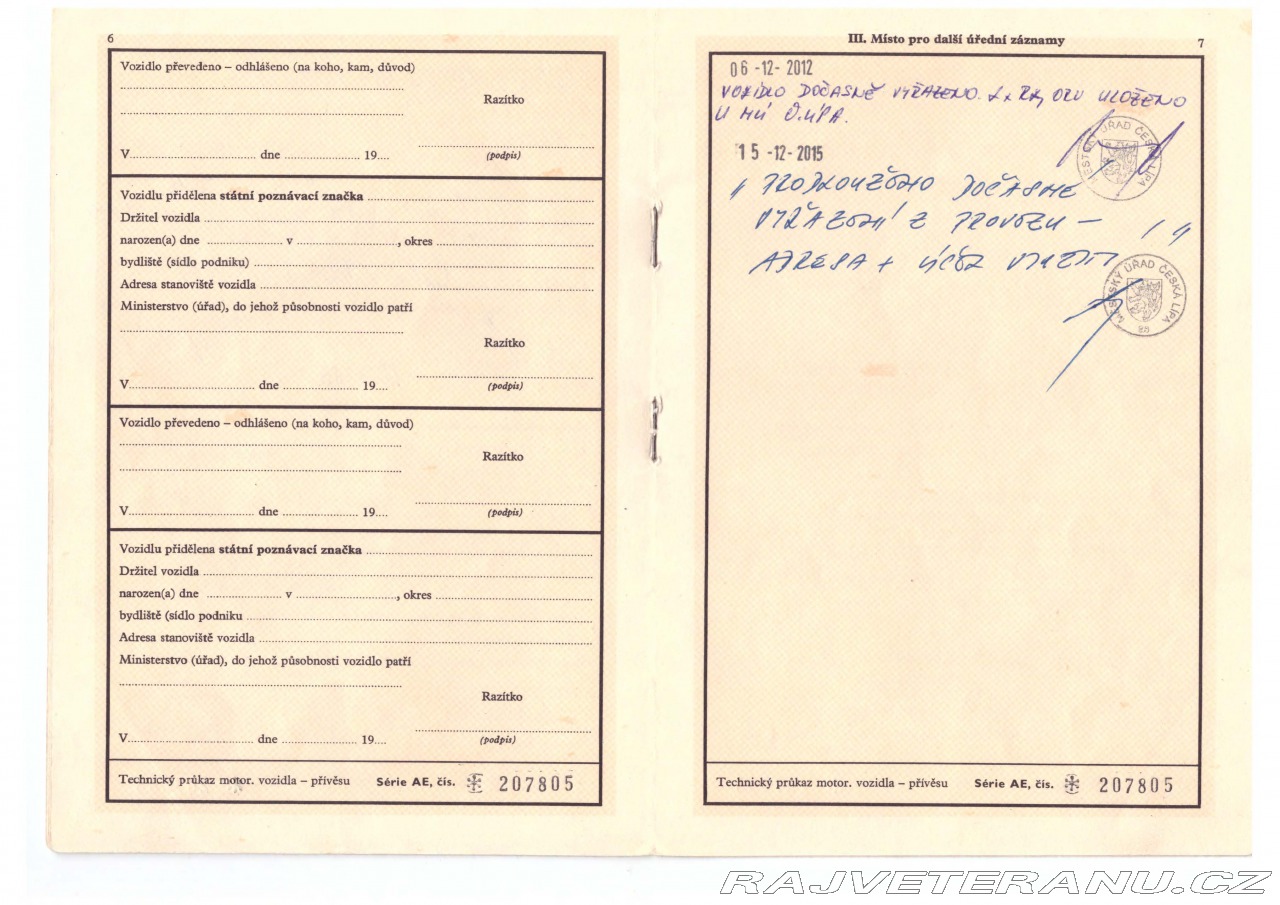 6
Vozidlo převedeno – odhlášeno (na koho, kam, důvod)
Razítko
V. dne 19
(podpis)
Vozidlu přidělena státní poznávací značka
Držitel vozidla
narozen(a) dne v , okres
bydliště (sídlo podniku)
Adresa stanoviště vozidla
Ministerstvo (úřad), do jehož působnosti vozidlo patří
Razítko
V. dne 19
(podpis)
Vozidlo převedeno – odhlášeno (na koho, kam, důvod)
Razítko
V. dne 19
(podpis)
Vozidlu přidělena státní poznávací značka
Držitel vozidla
narozen(a) dne v , okres
bydliště (sídlo podniku
Adresa stanoviště vozidla
Ministerstvo (úřad), do jehož působnosti vozidlo patří
Razítko
V. dne 19
(podpis)
Technický průkaz motor. vozidla – přívěsu Série AE, čís. 207805
III. Místo pro další úřední záznamy 7
06 -12- 2012
VOZIDLO DOČASNĚ VYŘAZENO. 2x RZ, ORV ULOŽENO
U MÚ Č.LÍPA.
MĚSTSKÝ ÚŘAD ČESKÁ LÍPA
15 -12- 2015
" PRODLOUŽENO DOČASNÉ
VYŘAZENÍ Z PROVOZU –
ADRESA + ÚČEL VYUŽITÍ "
MĚSTSKÝ ÚŘAD ČESKÁ LÍPA
28
Technický průkaz motor. vozidla – přívěsu Série AE, čís. 207805
RAJVETERANU.CZ